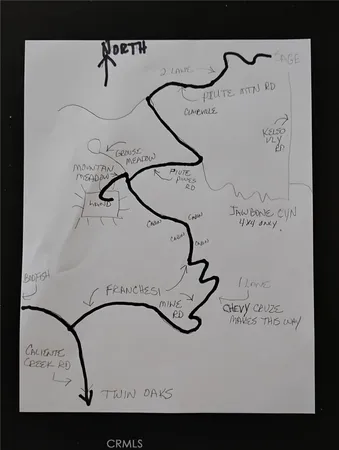 NORTH
2 LANE
SAGE
PIUTE MTN RD
CLARAVILLE
KELSO
VLY
RD
GROUSE
MEADOW
MOUNTAIN
MEADOW
PIUTE
PINES
RD
LAND
JAWBONE CYN
4X4 ONLY
CABIN
CABIN
CABIN
BIGFISH
FRANCHESI
MINE
RD
1 LANE
CHEVY CRUZE
MAKES THIS WAY
CALIENTE
CREEK RD
TWIN OAKS
CRMLS